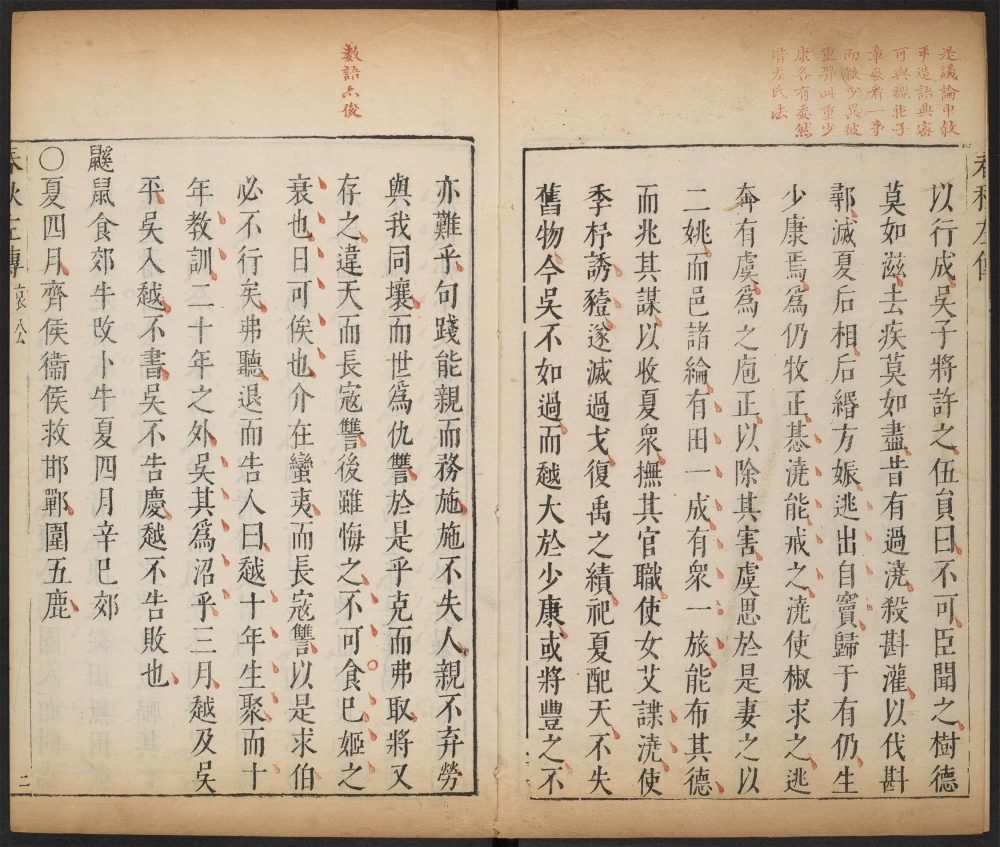 是議論中敘
事造語典密
可與魏莊子
章參看一事
而敘少異彼
重羿此重少
康各有委然
皆左氏法
春秋左傳
以行成吳子將許之伍員曰不可臣聞之樹德
莫如滋去疾莫如盡昔有過澆殺斟灌以伐斟
鄩滅夏后相后緡方娠逃出自竇歸于有仍生
少康焉為仍牧正惎澆能戒之澆使椒求之逃
奔有虞為之庖正以除其害虞思於是妻之以
二姚而邑諸綸有田一成有衆一旅能布其德
而兆其謀以收夏衆撫其官職使女艾諜澆使
季杼誘豷遂滅過戈復禹之績祀夏配天不失
舊物今吳不如過而越大於少康或將豐之不
數語亦俊
亦難乎句踐能親而務施施不失人親不弃勞
與我同壤而世為仇讐於是乎克而弗取將又
存之違天而長寇讐後雖悔之不可食已姬之
衰也日可俟也介在蠻夷而長寇讐以是求伯
必不行矣弗聽退而告人曰越十年生聚而十
年教訓二十年之外吳其為沼乎三月越及吳
平吳入越不書吳不告慶越不告敗也
鼷鼠食郊牛改卜牛夏四月辛巳郊
○夏四月齊侯衛侯救邯鄲圍五鹿
春秋左傳 哀公 二